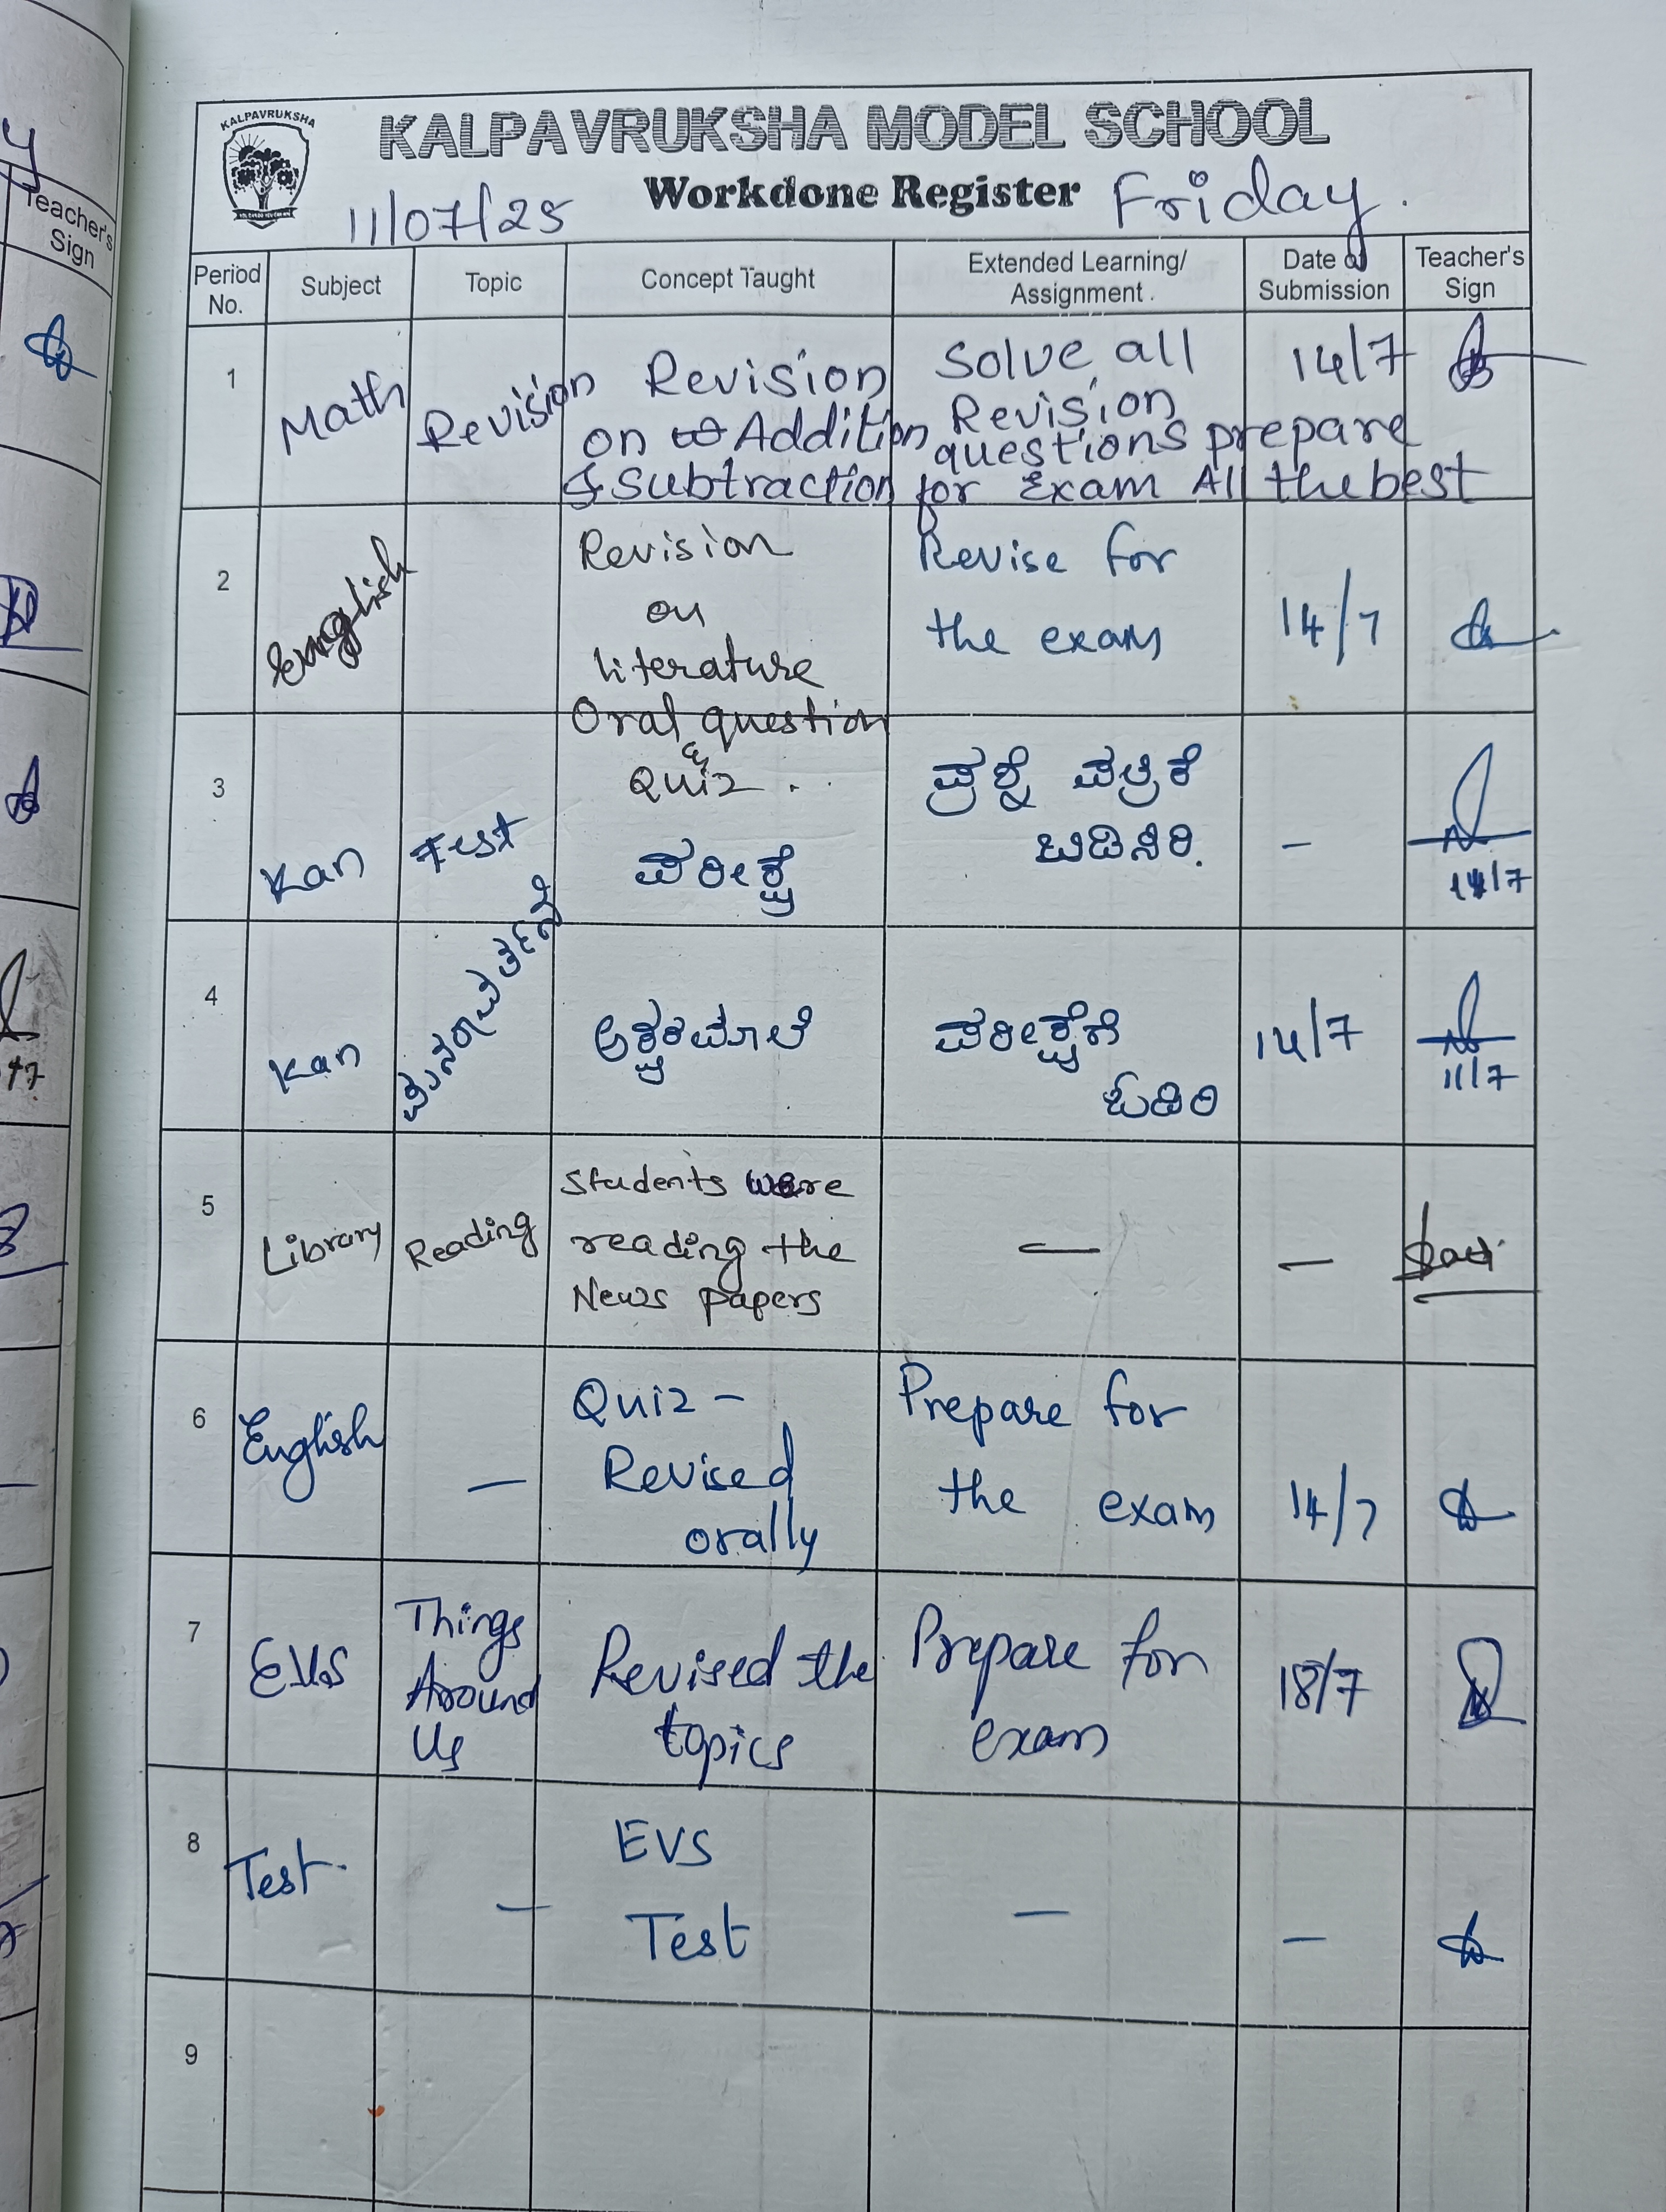 y
Teacher's
Sign
KALPAVRUKSHA
KALPAVRUKSHA MODEL SCHOOL
Workdone Register Friday.
11/07/25
Period No.
Subject
Topic
Concept Taught
Extended Learning/
Assignment .
Date of
Submission
Teacher's
Sign
1
Math
Revision
Revision
on Addition
& Subtraction
Solve all
Revision
questions prepare
for Exam All the best
14/7
2
English
Revision
on
literature
Oral question
&
Quiz .
Revise for
the exam
14/7
3
Kan
Test
ಪರೀಕ್ಷೆ
ಪ್ರಶ್ನೆ ಪತ್ರಿಕೆ
ಬಿಡಿಸಿರಿ.
-
4
Kan
ಪುನರಾವರ್ತನೆ
ಅಕ್ಷರಮಾಲೆ
ಪರೀಕ್ಷೆಗೆ
ಓದಿರಿ
14/7
11/7
5
Library
Reading
Students were
reading the
News papers
—
—
6
English
—
Quiz -
Revised
orally
Prepare for
the exam
14/7
7
EVS
Things
Around
Us
Revised the
topics
Prepare for
exam
18/7
8
Test.
—
EVS
Test
—
—
9